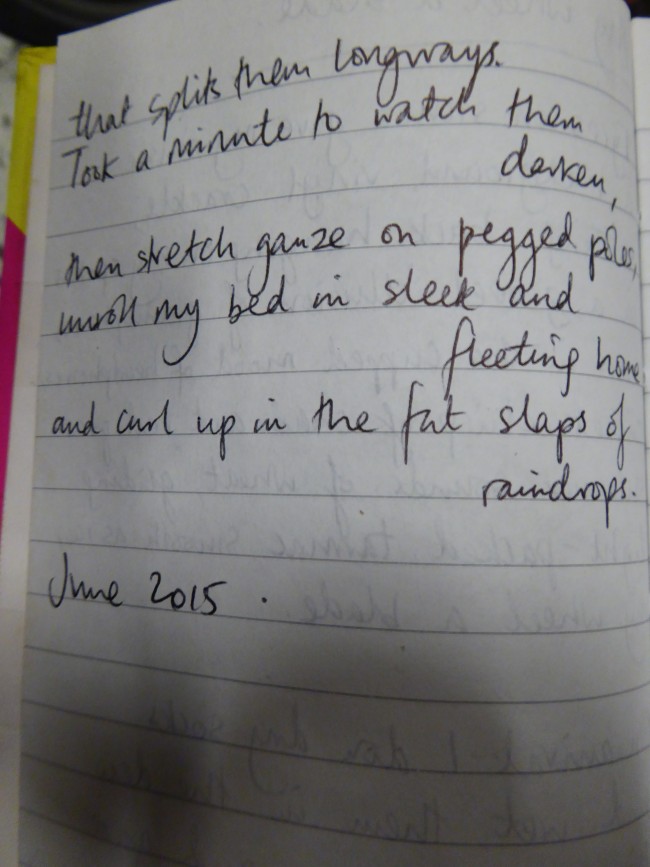 that splits them longways.
Took a minute to watch them
darken,
then stretch gauze on pegged poles,
unroll my bed in sleek and
fleeting home
and curl up in the fat slaps of
raindrops.
June 2015.